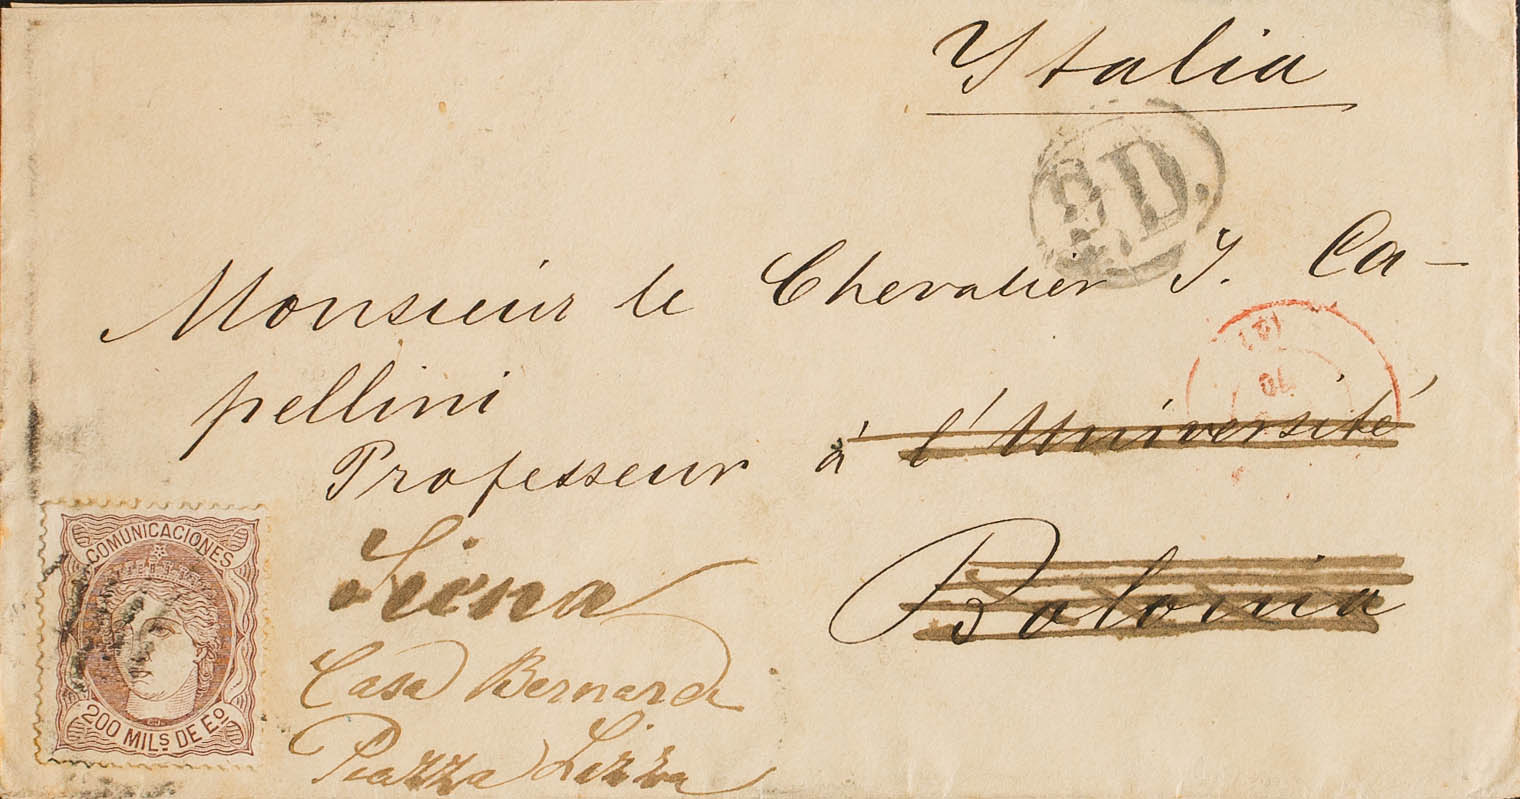 Italia
P.D.
Monsieur le Chevalier J. Ca-
pellini
Professeur à l'Université
Bolonia
Siena
Casa Bernardi
Piazza Lizza
COMUNICACIONES
200 MILS. DE Eº.